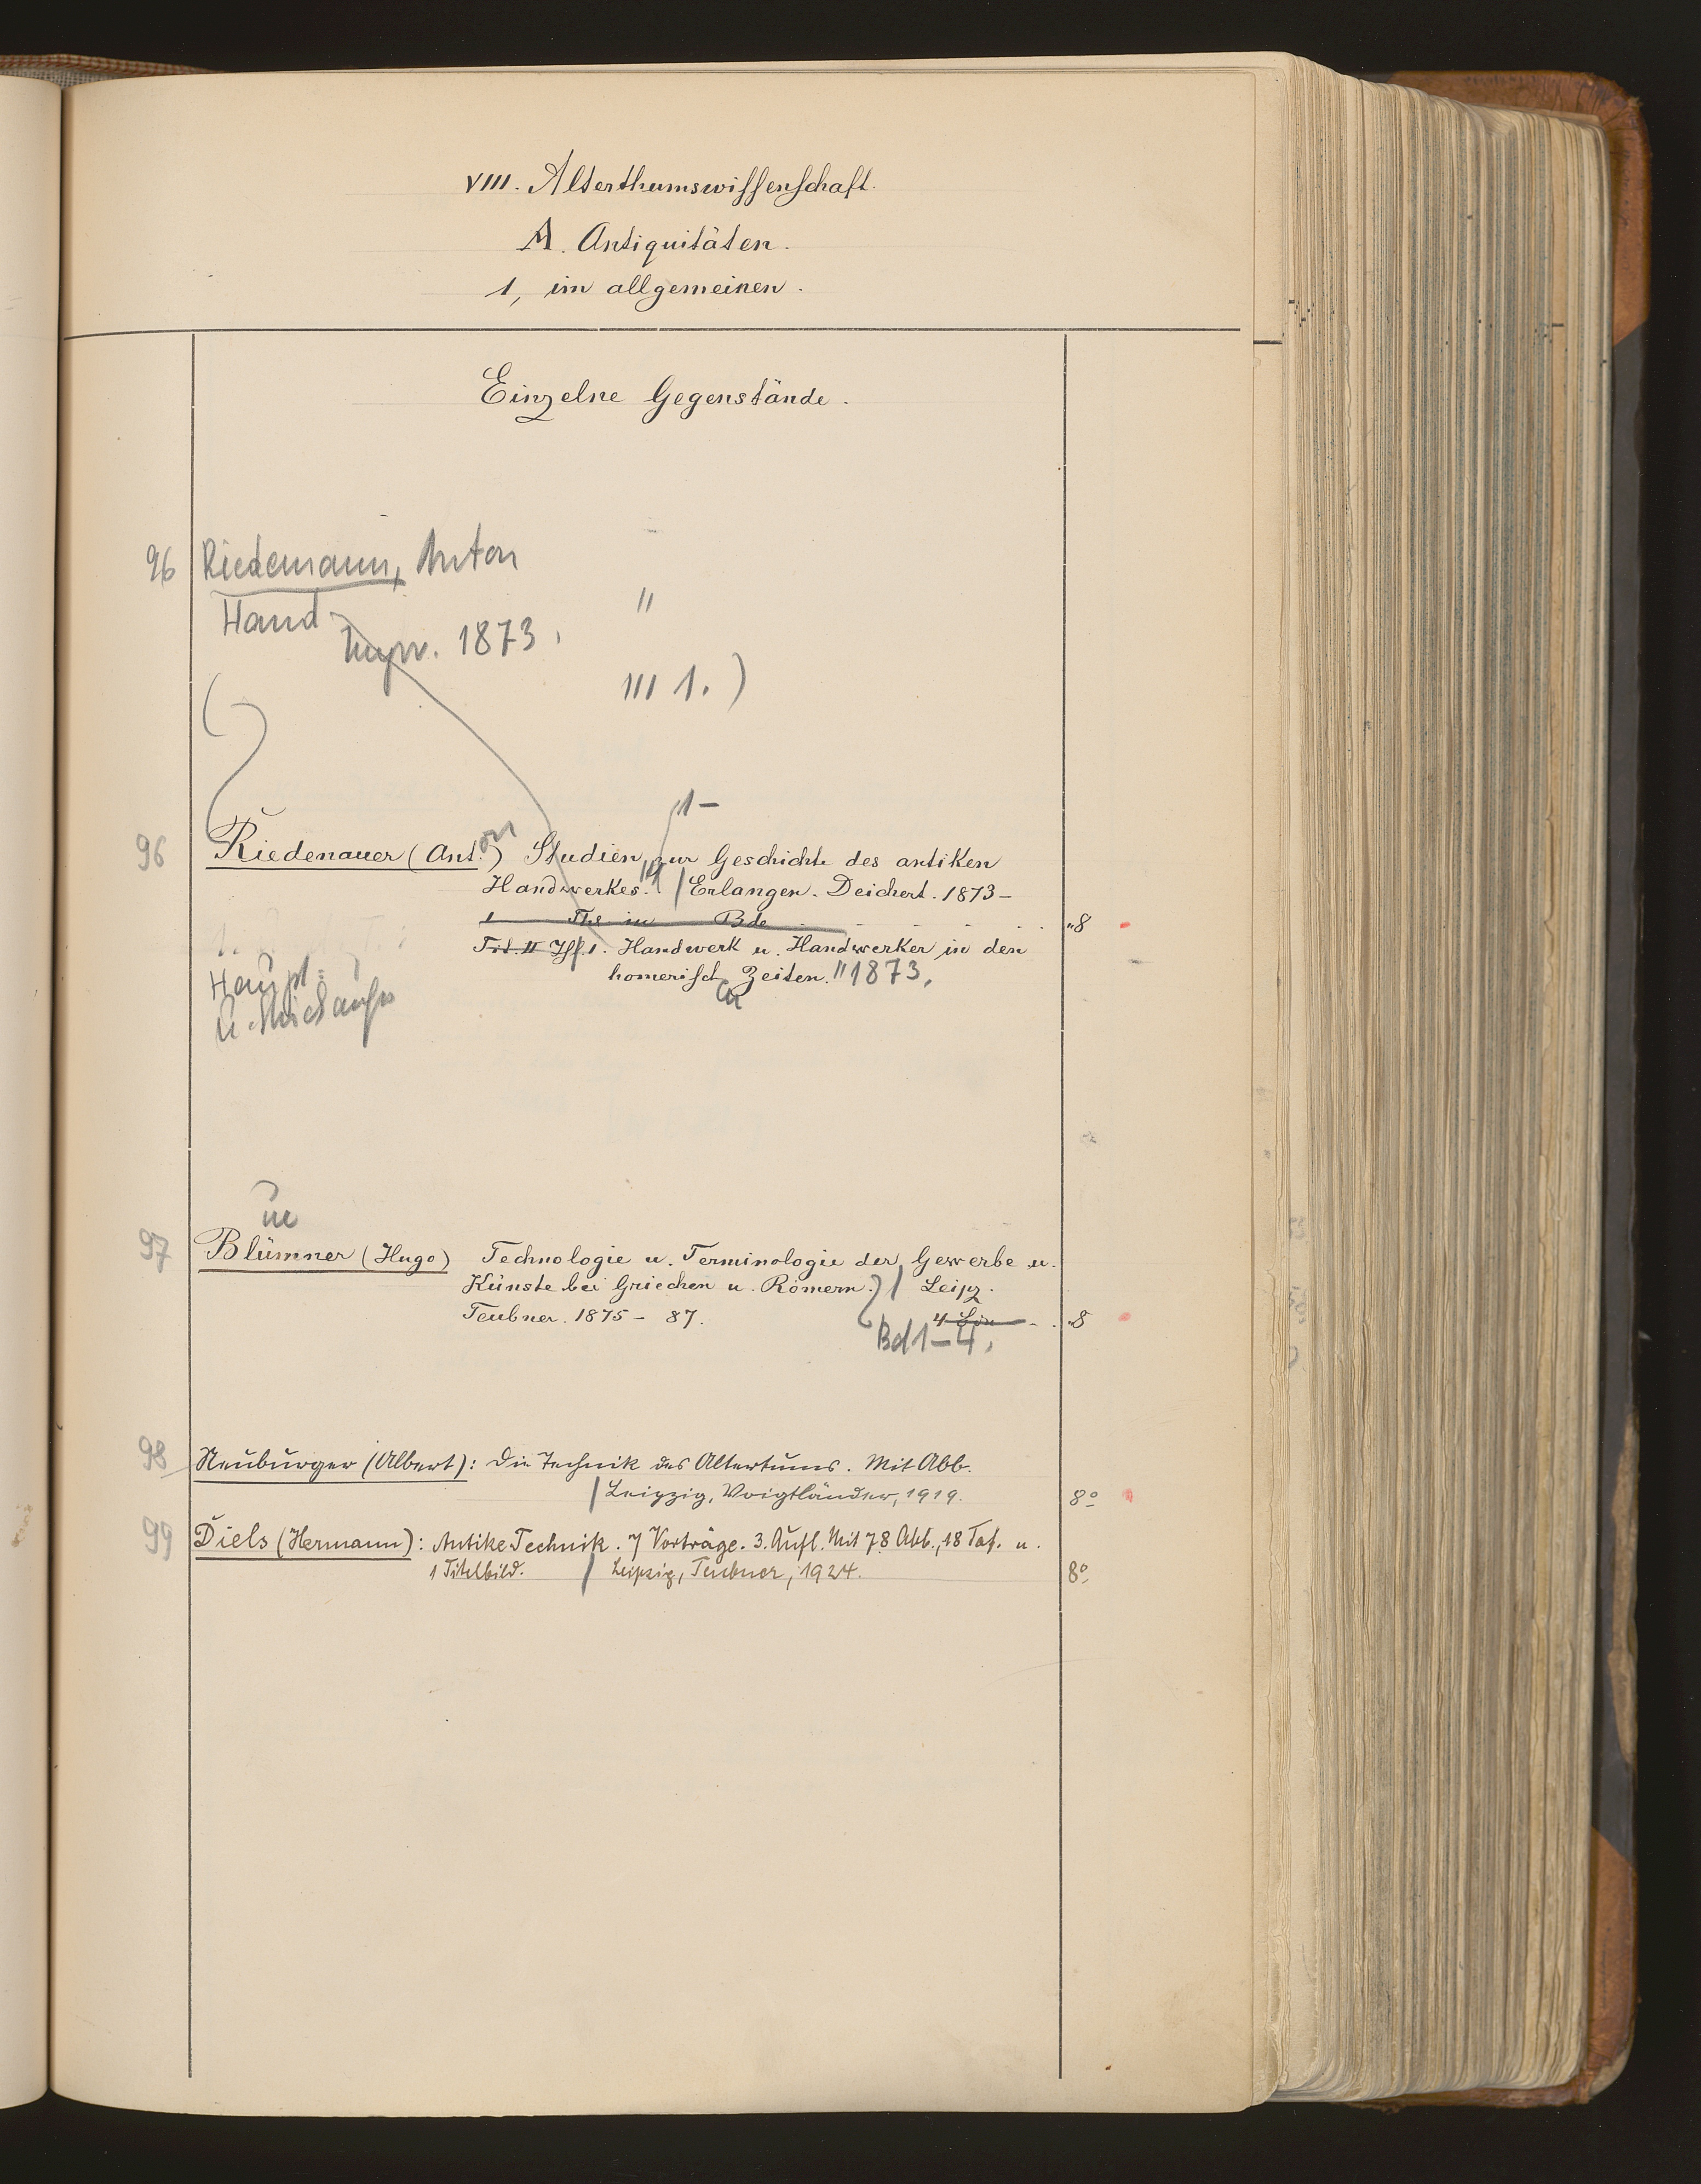 VIII. Alterthumswissenschaft.
A. Antiquitäten.
1, im allgemeinen.
Einzelne Gegenstände.
96 Riedemann, Anton
"
Hand
1873.
III 1.)
1-
96 Riedenauer (Ant.on) Studien zur Geschichte des antiken
Handwerkes. / Erlangen. Deichert. 1873-
1 Thl in Bde "8
1. Handwerk u. Handwerker in den
homerisch Zeiten. "1873.
en
Haupt=
u.
ue
97 Blümner (Hugo) Technologie u. Terminologie der Gewerbe u.
Künste bei Griechen u. Römern. / Leipz.
Teubner. 1875- 87. "8
Bd 1-4.
98 Neuburger (Albert): Die Technik des Altertums. Mit Abb.
/ Leipzig, Voigtländer, 1919. 8º
99 Diels (Hermann): Antike Technik. 7 Vorträge. 3. Aufl. Mit 78 Abb., 18 Taf. u.
1 Titelbild. / Leipzig, Teubner, 1924. 8º